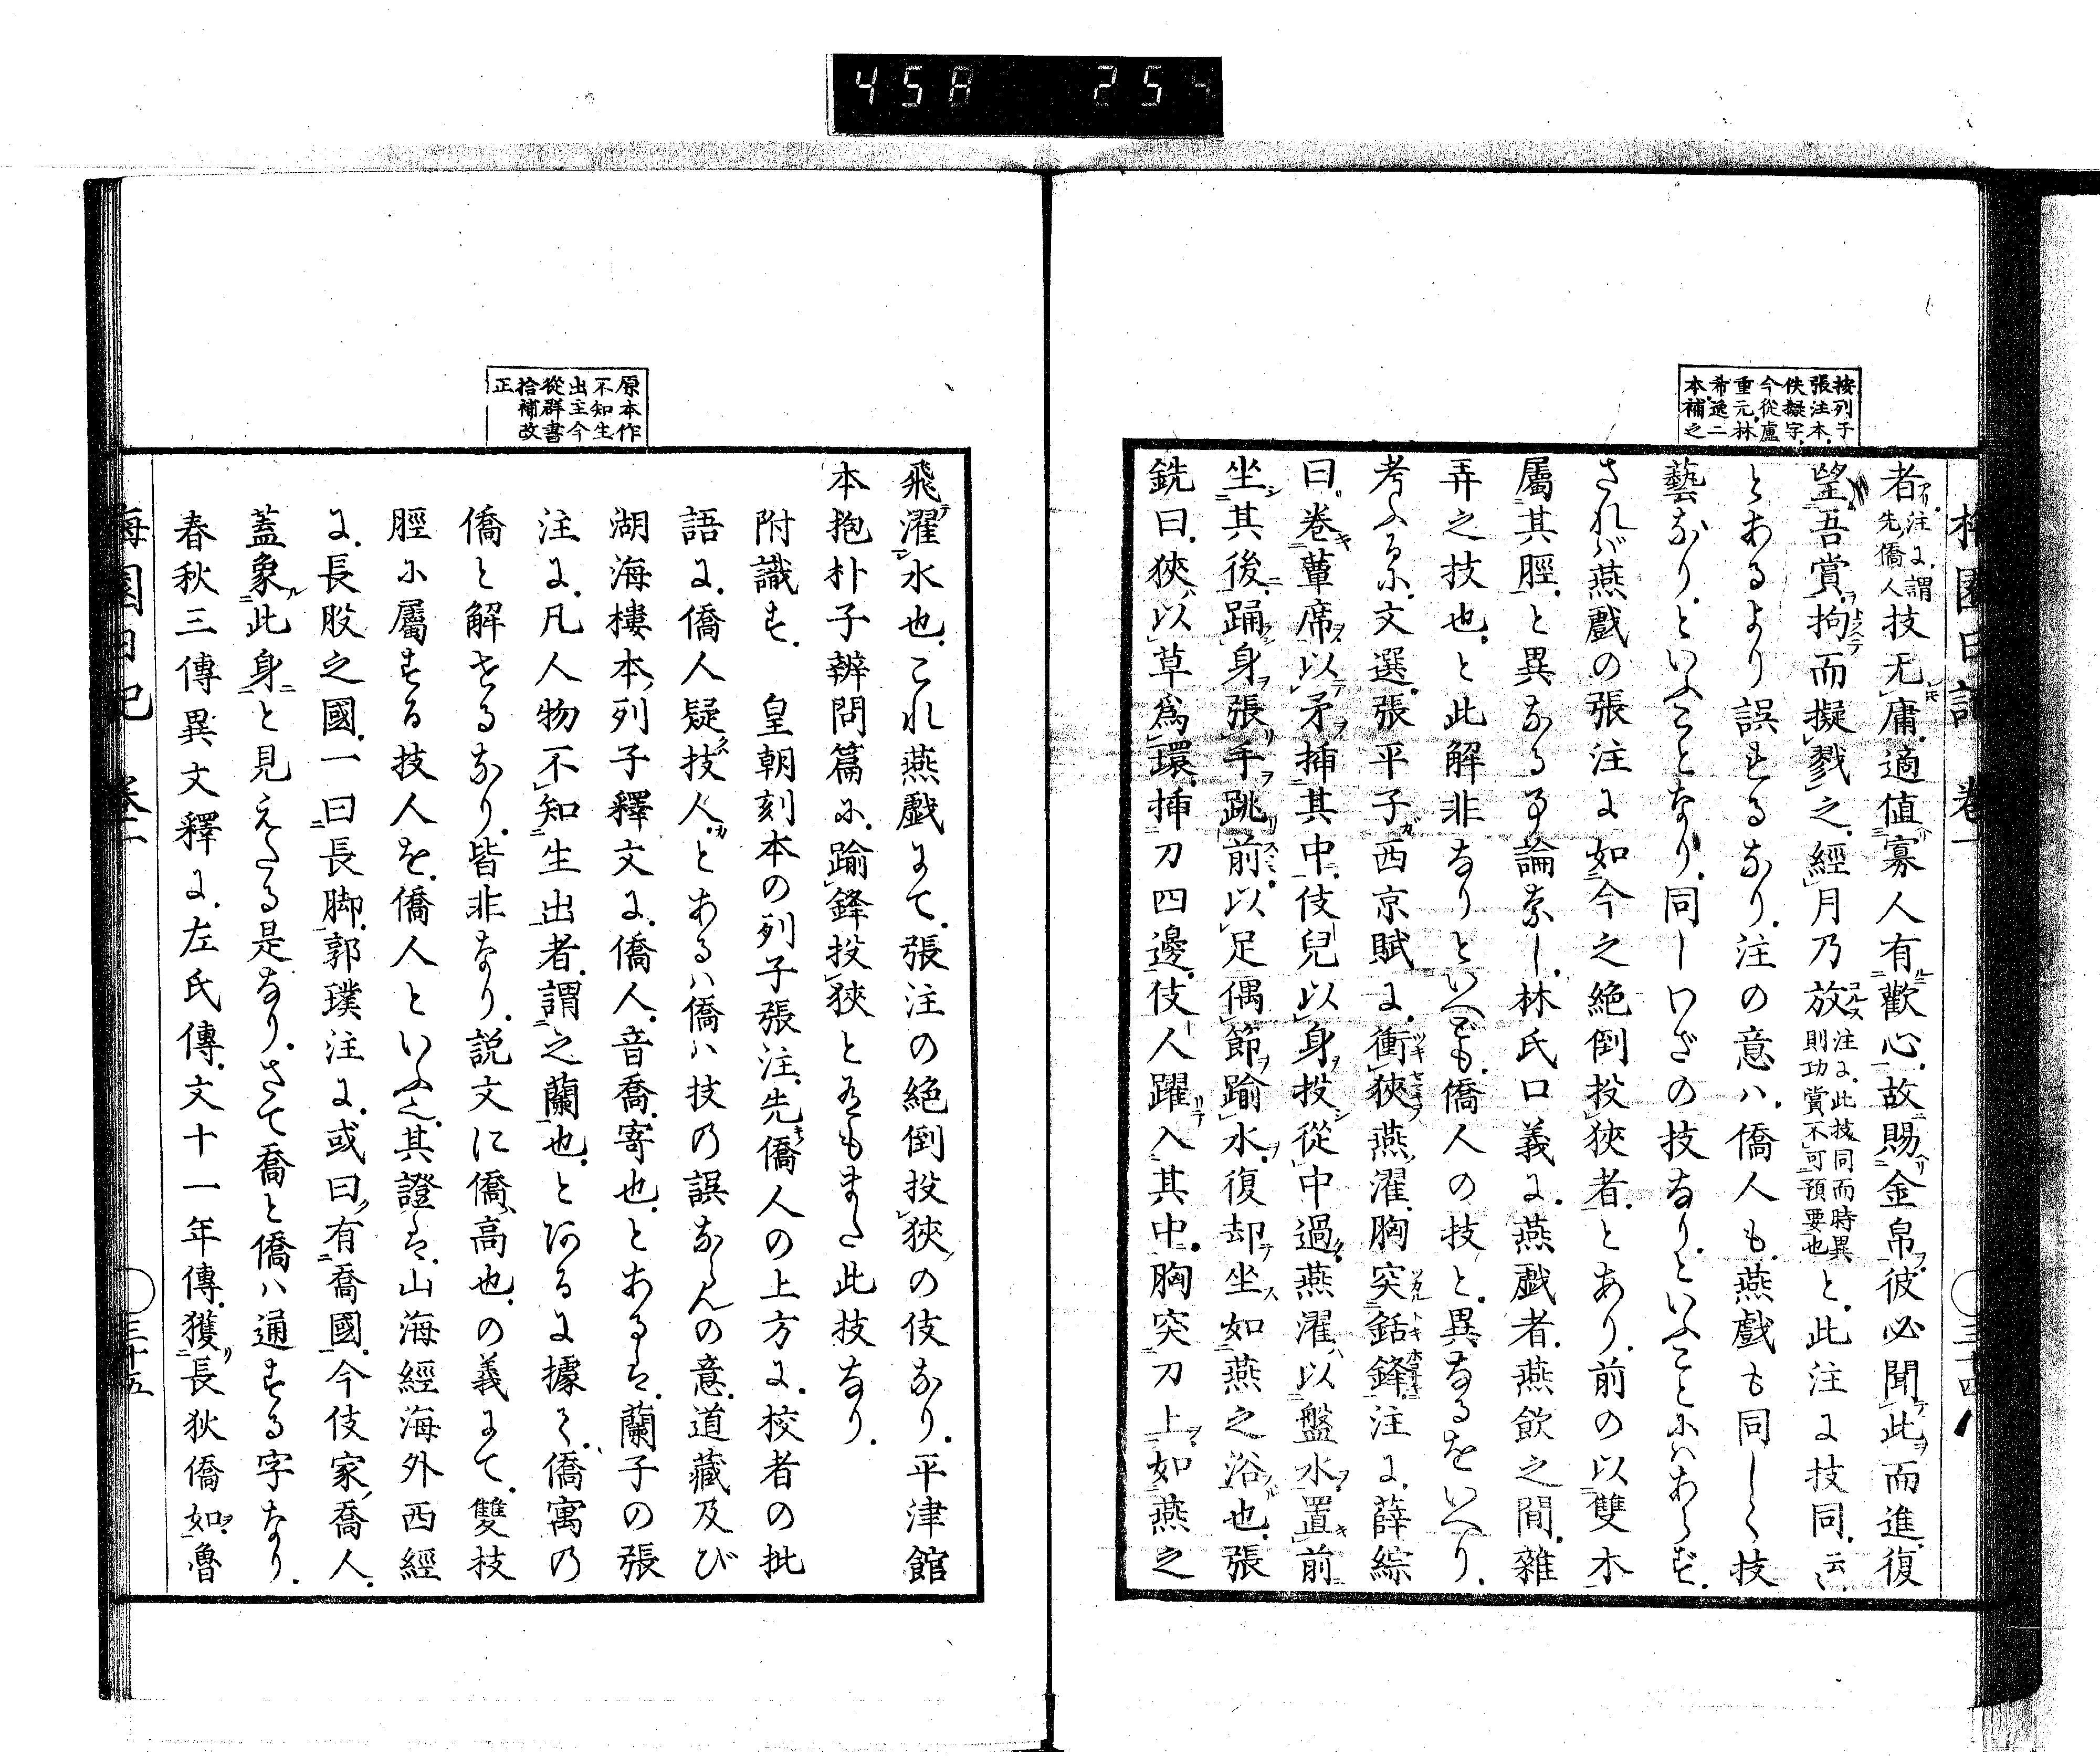 458 254
梅園日記 巻一 三十四
按列子
張注本
佚擬字
今從盧
重元林
希逸二
本補之
者注に謂先僑人技无庸適値寡人有歡心故賜金帛彼必聞此而進復
望吾賞拘而擬戮之經月乃放注に此技同而時異則功賞不可預要也と此注に技同云〻
とあるより誤れるなり注の意ハ僑人も燕戲も同しく技
藝なりといふことなり同しわざの技なりといふことにハあらず
されバ燕戲の張注に如今之絶倒投狹者とあり前の以雙木
屬其脛と異なる事論なし林氏口義に燕戲者燕飲之間雜
弄之技也と此解非なりといへども僑人の技と異なるをいへり
考ふるに文選張平子西京賦に衝狹燕濯胸突銛鋒注に薛綜
曰卷蕇席以矛插其中伎兒以身投從中過燕濯以盤水置前
坐其後踊身張手跳前以足偶節踰水復却坐如燕之浴也張
銑曰狹以草爲環插刀四邊伎人躍入其中胸突刀上如燕之
原本作
不知生
出主今
從群書
拾補改
正
飛濯水也これ燕戲にて張注の絶倒投狹の伎なり平津館
本抱朴子辨問篇に踰鋒投狹と有もまた此技なり
附識す 皇朝刻本の列子張注先僑人の上方に校者の批
語に僑人疑技人とあるハ僑ハ技の誤ならんの意道藏及び
湖海樓本列子釋文に僑人音喬寄也とあるは蘭子の張
注に凡人物不知生出者謂之蘭也とあるに據て僑寓の
僑と解せるなり皆非なり説文に僑高也の義にて雙技
脛に屬する技人を僑人といふ之其證は山海經海外西經
に長股之國一曰長脚郭璞注に或曰有喬國今伎家喬人
蓋象此身と見えたる是なりさて喬と僑ハ通する字なり
春秋三傳異文釋に左氏傳文十一年傳獲長狄僑如魯
梅園日記 巻一 三十五